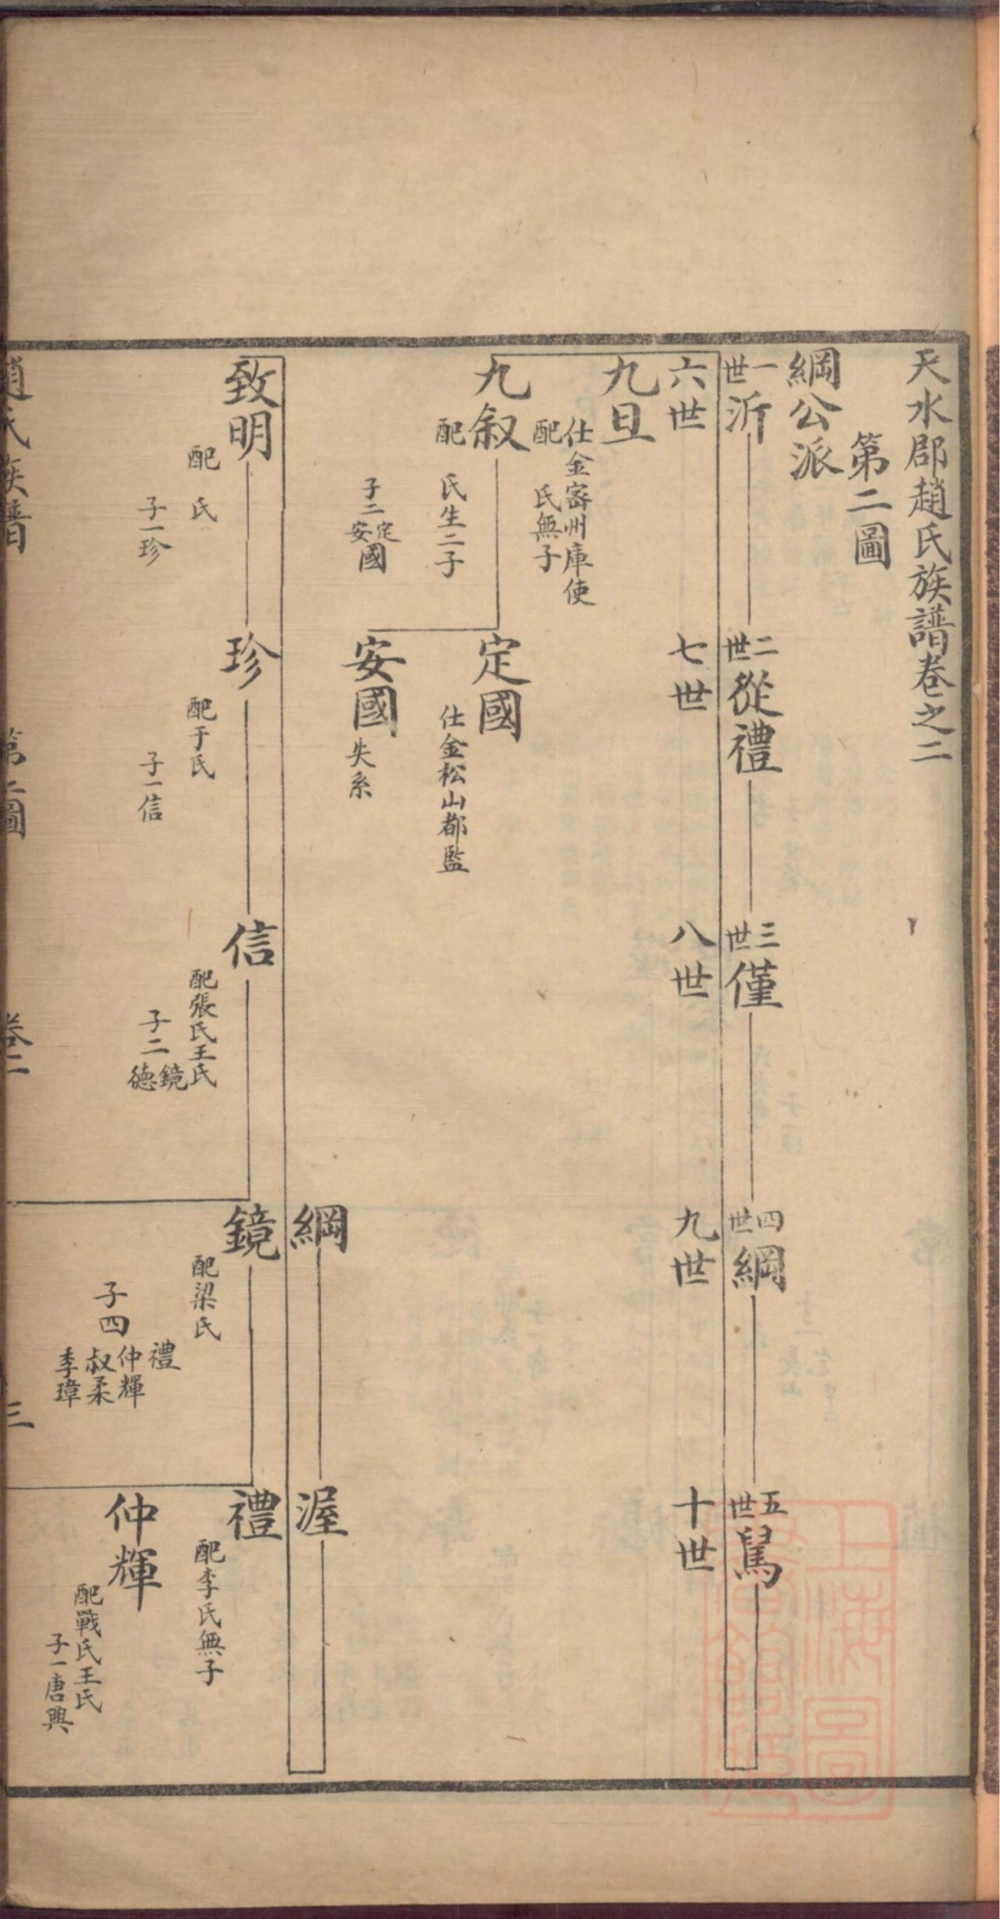 天水郡趙氏族譜卷之二
第二圖
綱公派
一世 沂
二世 從禮
三世 僅
四世 綱
五世 鴽
六世
七世
八世
九世
十世
九旦
仕金密州庫使
配 氏無子
九叙
配 氏生二子
子二 定國 安國
定國
仕金松山都監
安國
失系
綱
渥
致明
配 氏
子一珍
珍
配于氏
子一信
信
配張氏王氏
子二 鏡 德
鏡
配梁氏
子四 禮 仲輝 叔柔 季璋
禮
配李氏無子
仲輝
配戰氏王氏
子一唐興
趙氏族譜
第二圖
卷二
三